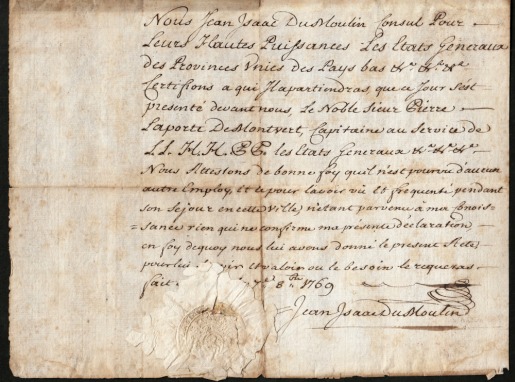 Nous Jean Isaac DuMoulin Consul Pour
Leurs Hautes Puissances Les Etats Generaux
des Provinces Unies des Pays bas &ra &ra &ra
Certifions a qui Il apartiendras, que ce Jour s'est
presenté devant nous, Le Noble Sieur Pierre
Laporte DeMontvert, Capitaine au Service de
LL. H. H. P.P. les Etats Generaux &ra &ra &ra
Nous Attestons de bonne foy qu'il n'est pourvu d'aucun
autre Employ, et que pour l'avoir vû et frequenté pendant
son sejour en cette Ville, n'etant parvenu à ma Conois-
=sance rien qui ne confirme ma presente déclaration
en foy dequoy nous lui avons donné le present Acte,
pour lui servir et valoir ou le besoin le requeras
fait 8bre 1769
Jean Isaac DuMoulin